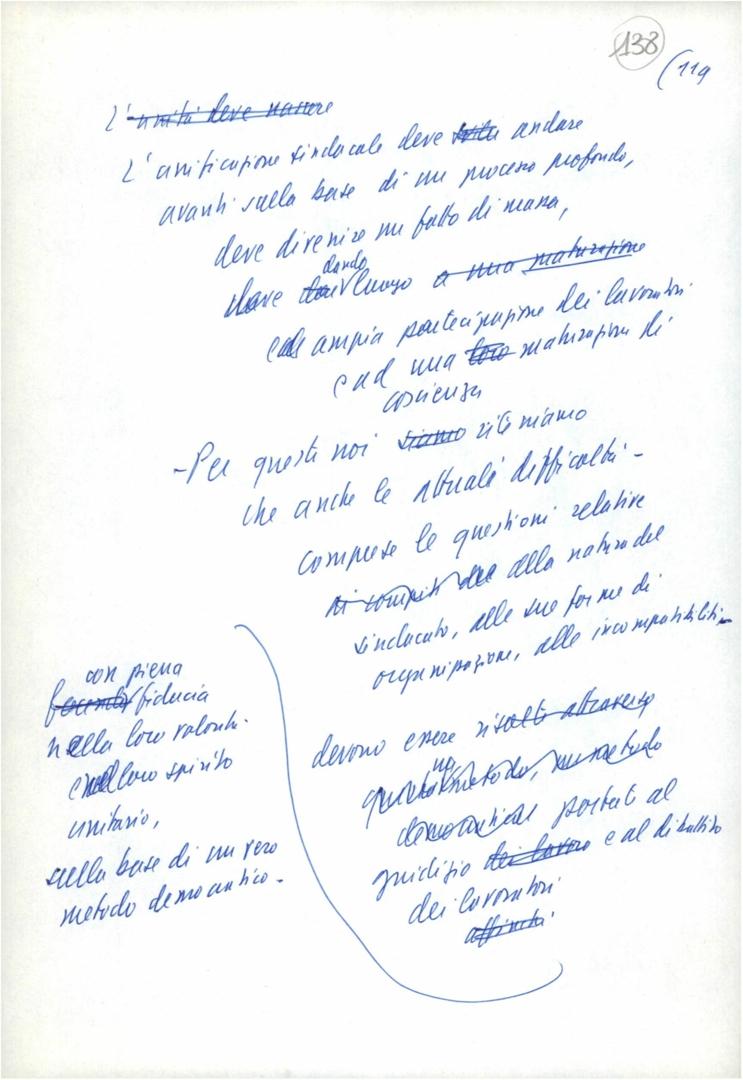 138
(119
L'unità deve nascere
L'unificazione sindacale deve andare
avanti sulla base di un processo profondo,
deve divenire un fatto di massa,
dando
deve luogo a una maturazione
ad ampia partecipazione dei lavoratori
e ad una loro maturazione di
coscienza
- Per questi noi siamo riteniamo
che anche le attuali difficoltà -
comprese le questioni relative
ai compiti del alla natura del
sindacato, alle sue forme di
organizzazione, alle incompatibilità -
devono essere risolte attraverso
un
questo metodo, un metodo
democratico portati al
giudizio dei lavoro e al dibattito
dei lavoratori
affinchè
con piena
facendo fiducia
nella loro volontà
e nel loro spirito
unitario,
sulla base di un vero
metodo democratico -